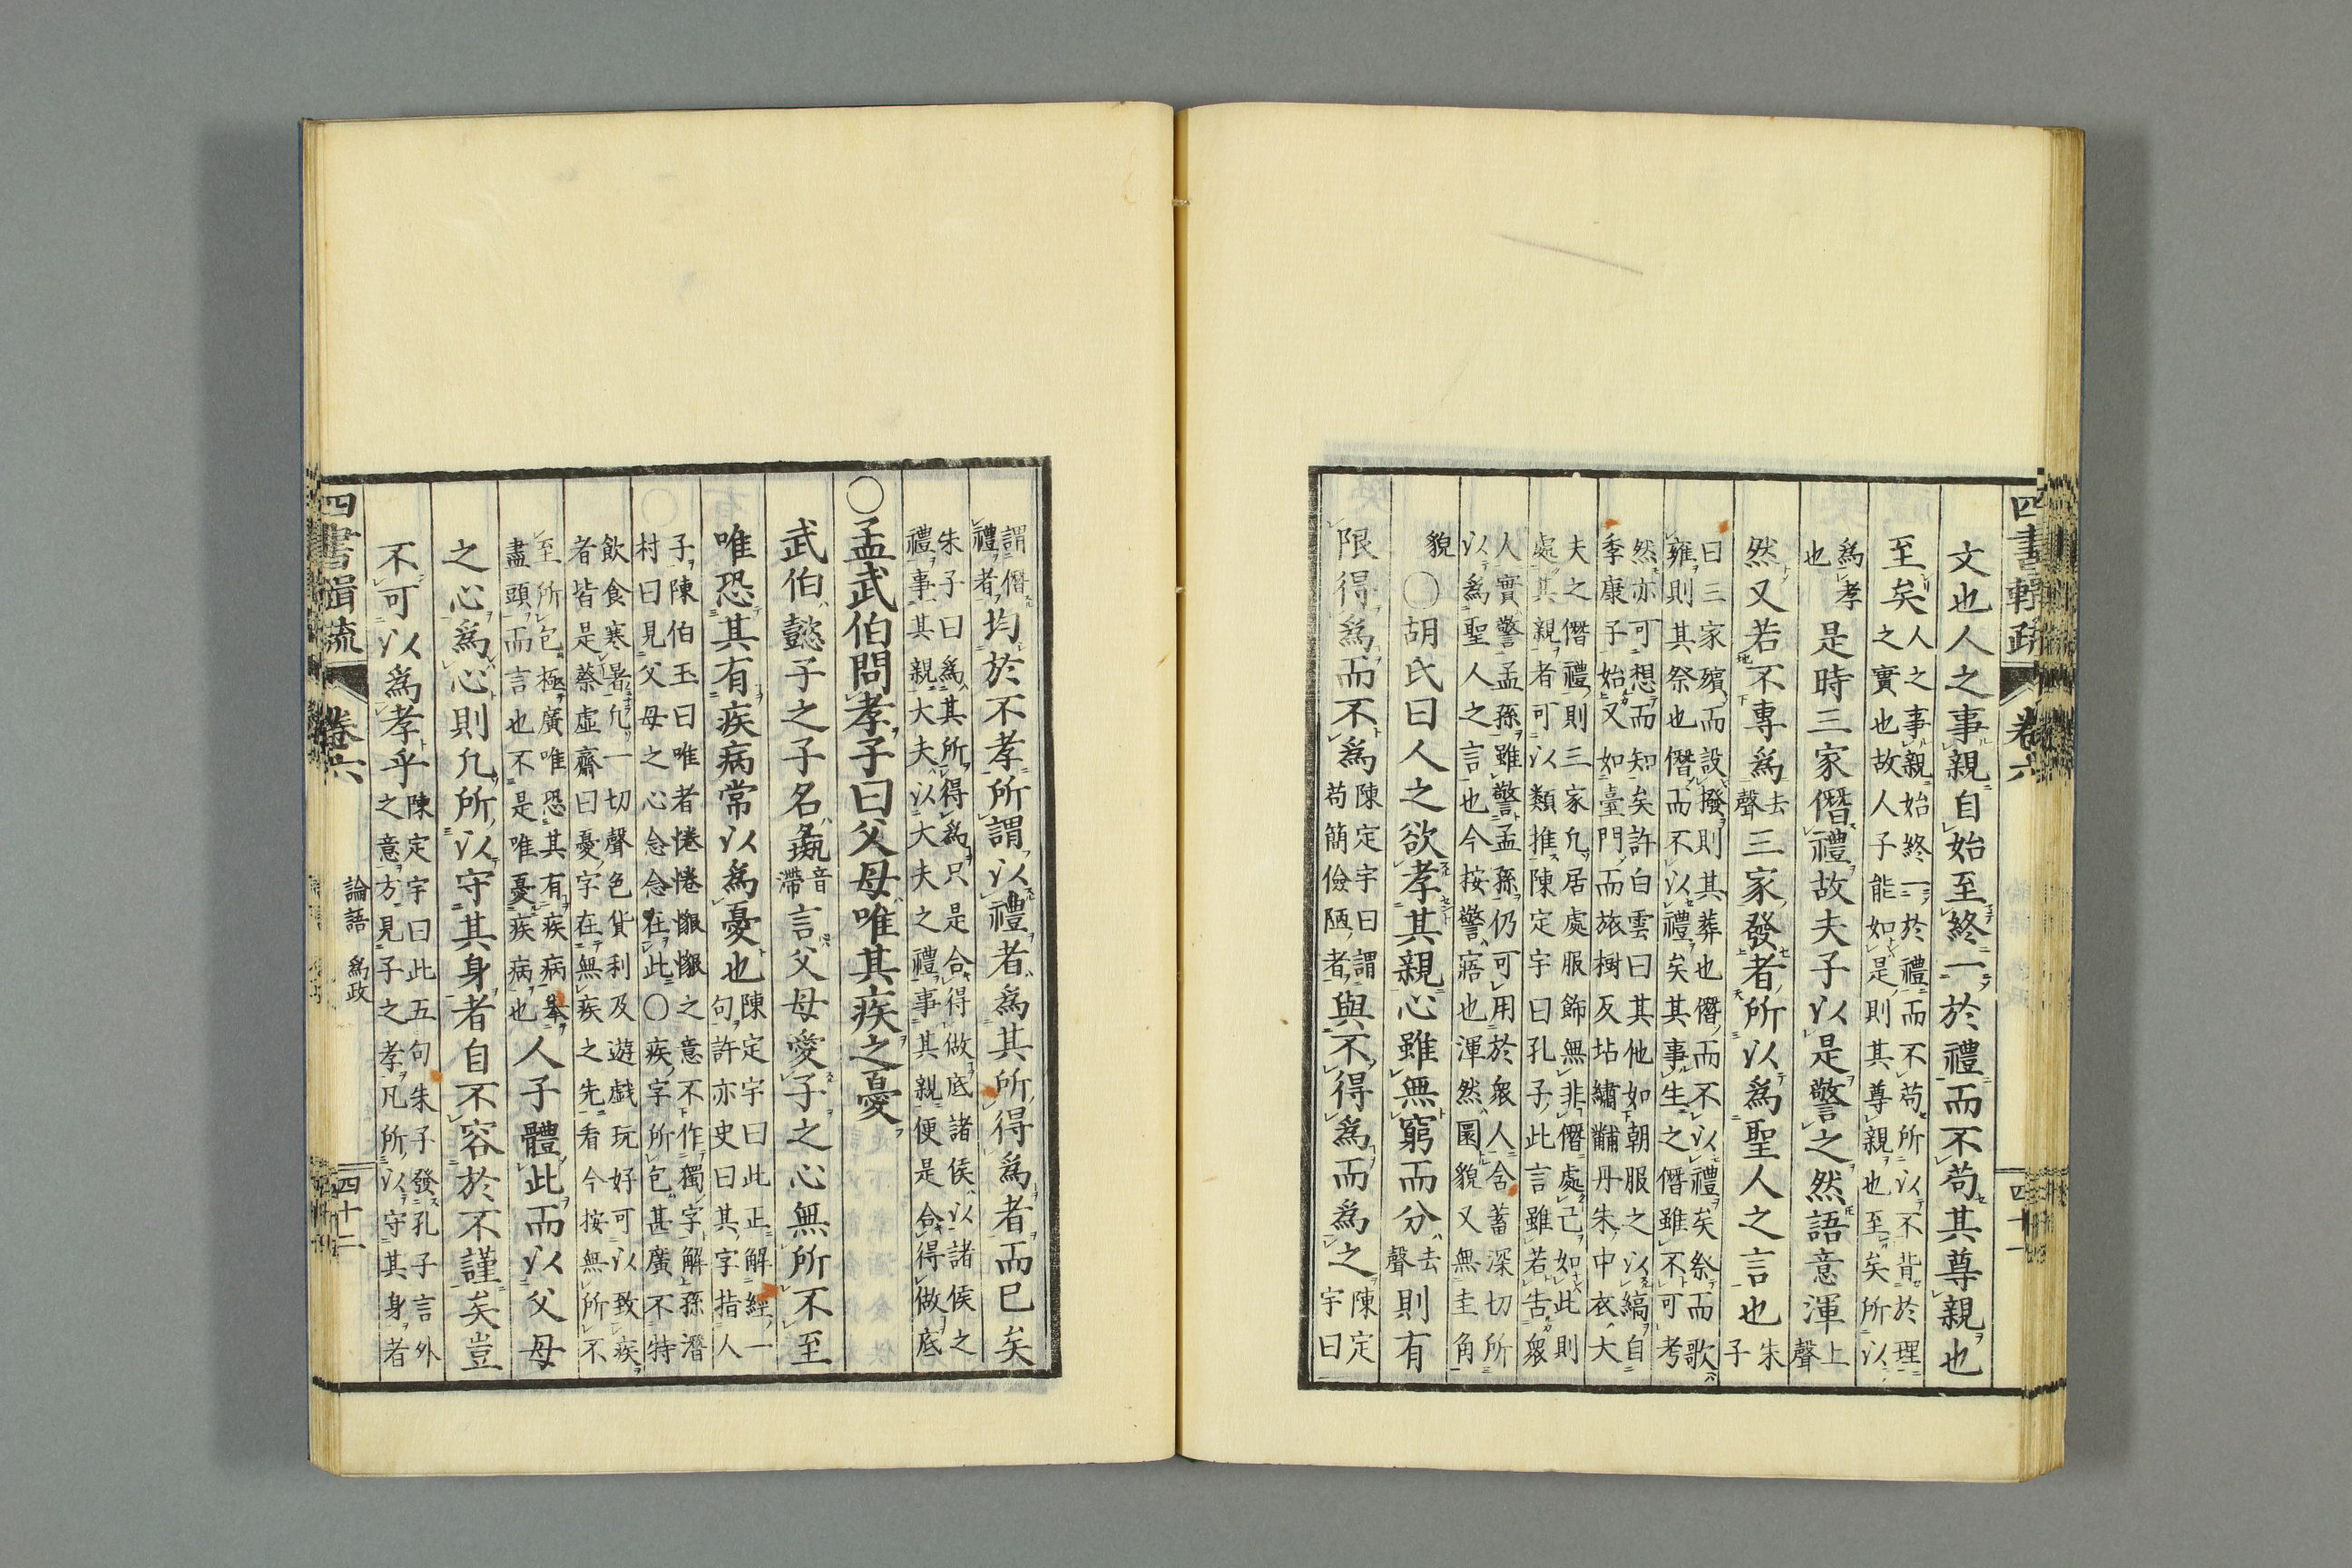 四書輯疏 卷六 四十一
文也人之事親自始至終一於禮而不苟其尊親也
至矣
人之事親始終一於禮而不苟所以不背於理
之實也故人子能如是則其尊親也至矣所以
爲孝
也
是時三家僭禮故夫子以是警之然語意渾
上
聲
然又若不專爲
去
聲
三家發者所以爲聖人之言也
朱
子
曰三家殯而設撥則其葬也僭而不以禮矣祭而歌
雍則其祭也僭而不以禮矣其事生之僭雖不可考
然亦可想而知矣許白雲曰其他如朝服之以縞自
季康子始又如臺門而旅樹反坫繡黼丹朱中衣大
夫之僭禮則三家凡居處服飾無非僭處己如此則
處其親者可以類推陳定宇曰孔子此言雖若告衆
人實警孟孫雖警孟孫仍可用於衆人含蓄深切所
以爲聖人之言也今按警寤也渾然圂貌又無圭角
貌
○胡氏曰人之欲孝其親心雖無窮而分
去
聲
則有
限得爲而不爲
陳定宇曰謂
苟簡儉陋者
與不得爲而爲之
陳定
宇曰
謂僭
禮者
均於不孝所謂以禮者爲其所得爲者而已矣
朱子曰爲其所得爲只是合得做底諸侯以諸侯之
禮事其親大夫以大夫之禮事其親便是合得做底
○孟武伯問孝子曰父母唯其疾之憂
武伯懿子之子名彘
音
滯
言父母愛子之心無所不至
唯恐其有疾病常以爲憂也
陳定宇曰此正解經一
句許亦史曰其字指人
子陳伯玉曰唯者惓惓懇懇之意不作獨字解孫潛
村曰見父母之心念念在此○疾字所包甚廣不特
飲食寒暑凡一切聲色貨利及遊戲玩好可以致疾
者皆是蔡虛齋曰憂字在無疾之先看今按無所不
至所包極廣唯恐其有疾病舉
盡頭而言也不是唯憂疾病也
人子體此而以父母
之心爲心則凡所以守其身者自不容於不謹矣豈
不可以爲孝乎
陳定宇曰此五句朱子發孔子言外
之意方見子之孝凡所以守其身者
四書輯疏 卷六 論語 爲政 四十二